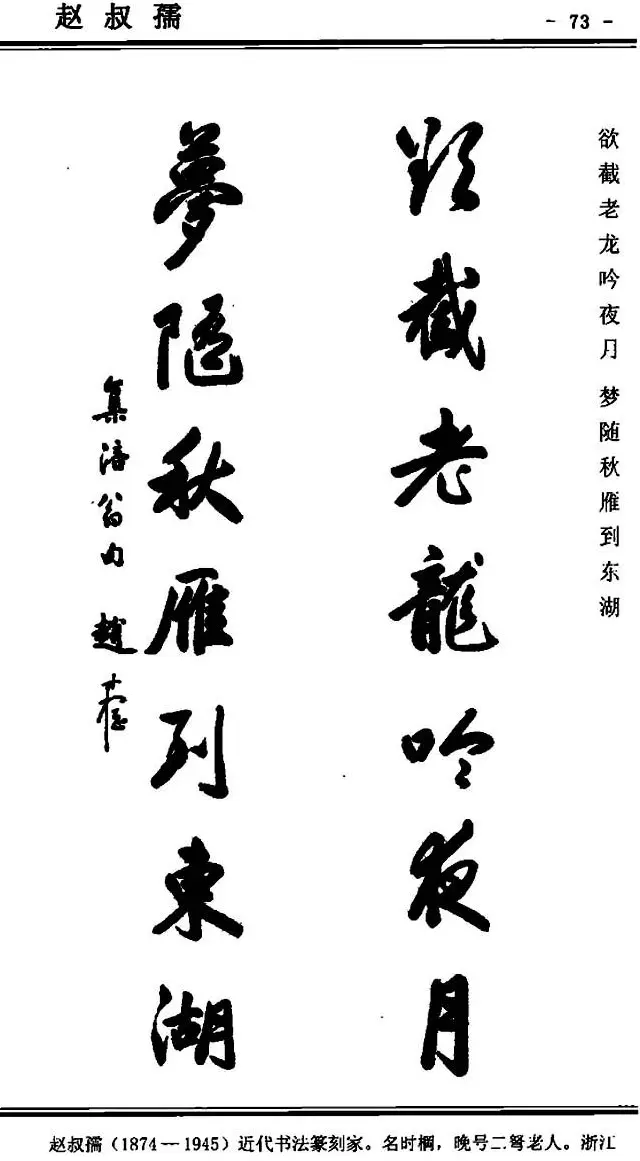 赵叔孺
- 73 -
欲截老龙吟夜月 梦随秋雁到东湖
欲截老龍吟夜月
夢随秋雁到東湖
集涪翁句 趙
赵叔孺(1874—1945)近代书法篆刻家。名时棡,晚号二弩老人。浙江